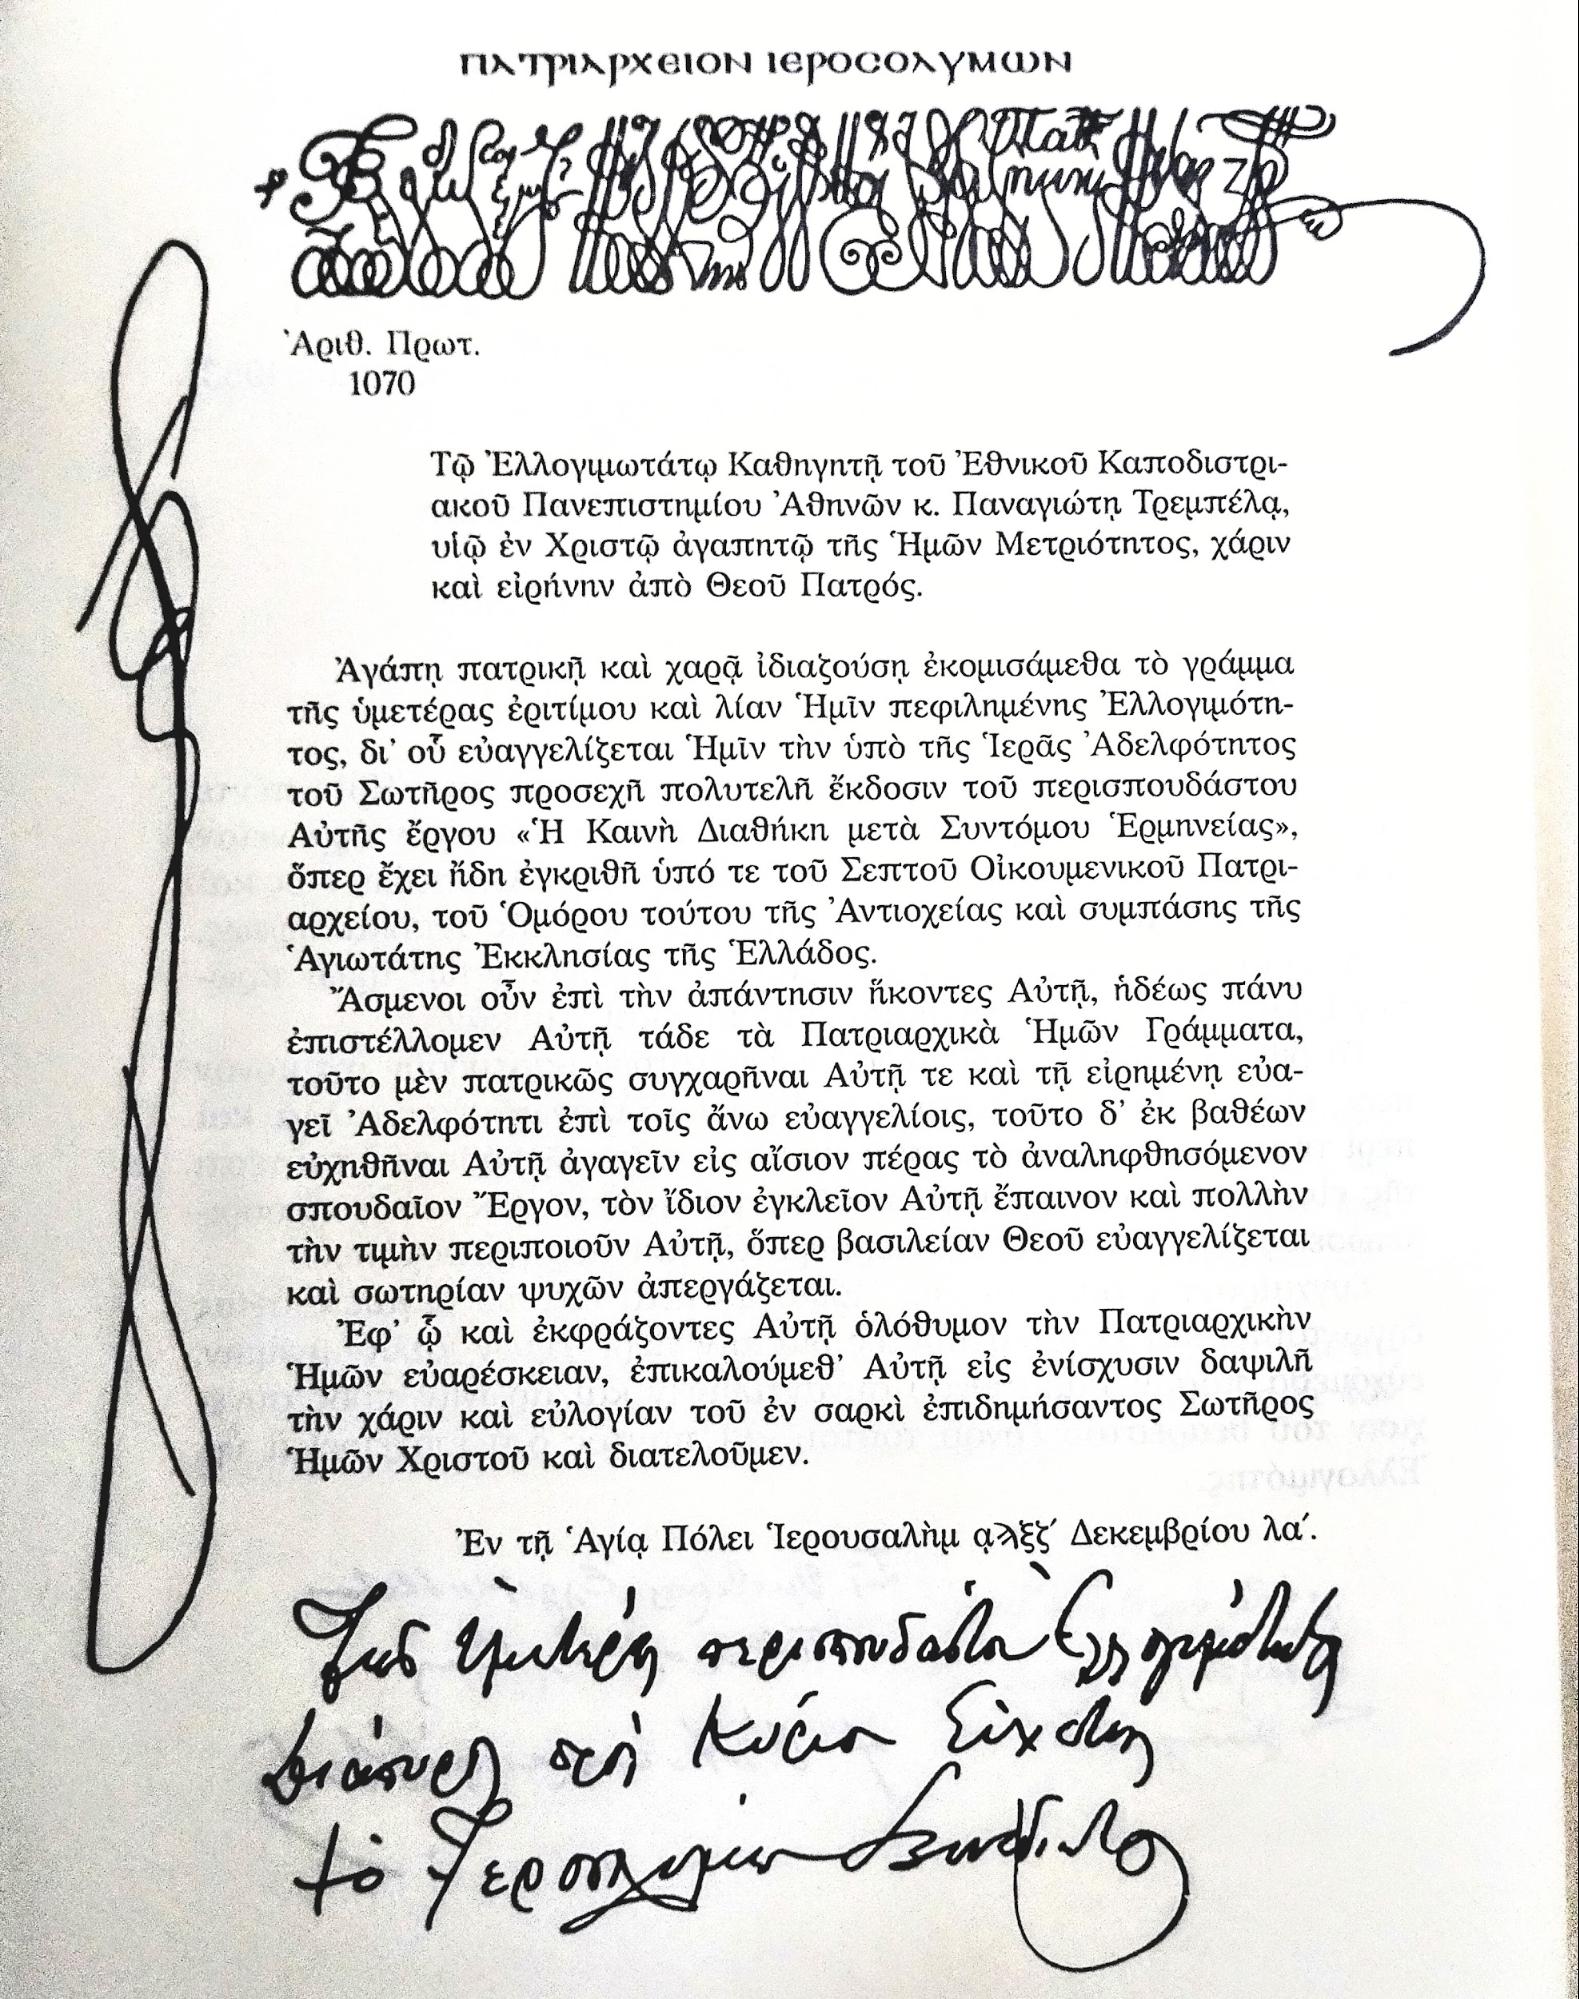 ΠΑΤΡΙΑΡΧΕΙΟΝ ΙΕΡΟΣΟΛΥΜΩΝ
Ἀριθ. Πρωτ.
1070
Τῷ Ἐλλογιμωτάτῳ Καθηγητῇ τοῦ Ἐθνικοῦ Καποδιστρι-
ακοῦ Πανεπιστημίου Ἀθηνῶν κ. Παναγιώτῃ Τρεμπέλᾳ,
υἱῷ ἐν Χριστῷ ἀγαπητῷ τῆς Ἡμῶν Μετριότητος, χάριν
καὶ εἰρήνην ἀπὸ Θεοῦ Πατρός.
Ἀγάπῃ πατρικῇ καὶ χαρᾷ ἰδιαζούσῃ ἐκομισάμεθα τὸ γράμμα
τῆς ὑμετέρας ἐριτίμου καὶ λίαν Ἡμῖν πεφιλημένης Ἐλλογιμότη-
τος, δι' οὗ εὐαγγελίζεται Ἡμῖν τὴν ὑπὸ τῆς Ἱερᾶς Ἀδελφότητος
τοῦ Σωτῆρος προσεχῆ πολυτελῆ ἔκδοσιν τοῦ περισπουδάστου
Αὐτῆς ἔργου «Ἡ Καινὴ Διαθήκη μετὰ Συντόμου Ἑρμηνείας»,
ὅπερ ἔχει ἤδη ἐγκριθῆ ὑπό τε τοῦ Σεπτοῦ Οἰκουμενικοῦ Πατρι-
αρχείου, τοῦ Ὁμόρου τούτου τῆς Ἀντιοχείας καὶ συμπάσης τῆς
Ἁγιωτάτης Ἐκκλησίας τῆς Ἑλλάδος.
Ἄσμενοι οὖν ἐπὶ τὴν ἀπάντησιν ἥκοντες Αὐτῇ, ἡδέως πάνυ
ἐπιστέλλομεν Αὐτῇ τάδε τὰ Πατριαρχικὰ Ἡμῶν Γράμματα,
τοῦτο μὲν πατρικῶς συγχαρῆναι Αὐτῇ τε καὶ τῇ εἰρημένῃ εὐα-
γεῖ Ἀδελφότητι ἐπὶ τοῖς ἄνω εὐαγγελίοις, τοῦτο δ' ἐκ βαθέων
εὐχηθῆναι Αὐτῇ ἀγαγεῖν εἰς αἴσιον πέρας τὸ ἀναληφθησόμενον
σπουδαῖον Ἔργον, τὸν ἴδιον ἐγκλεῖον Αὐτῇ ἔπαινον καὶ πολλὴν
τὴν τιμὴν περιποιοῦν Αὐτῇ, ὅπερ βασιλείαν Θεοῦ εὐαγγελίζεται
καὶ σωτηρίαν ψυχῶν ἀπεργάζεται.
Ἐφ' ᾧ καὶ ἐκφράζοντες Αὐτῇ ὁλόθυμον τὴν Πατριαρχικὴν
Ἡμῶν εὐαρέσκειαν, ἐπικαλούμεθ' Αὐτῇ εἰς ἐνίσχυσιν δαψιλῆ
τὴν χάριν καὶ εὐλογίαν τοῦ ἐν σαρκὶ ἐπιδημήσαντος Σωτῆρος
Ἡμῶν Χριστοῦ καὶ διατελοῦμεν.
Ἐν τῇ Ἁγίᾳ Πόλει Ἱερουσαλὴμ ᾳϡξζ´ Δεκεμβρίου λα´.
Τῆς Ὑμετέρας περισπουδάστου Ἐλλογιμότητος
Διάπυρος πρὸς Κύριον Εὐχέτης
† ὁ Ἱεροσολύμων Βενέδικτος